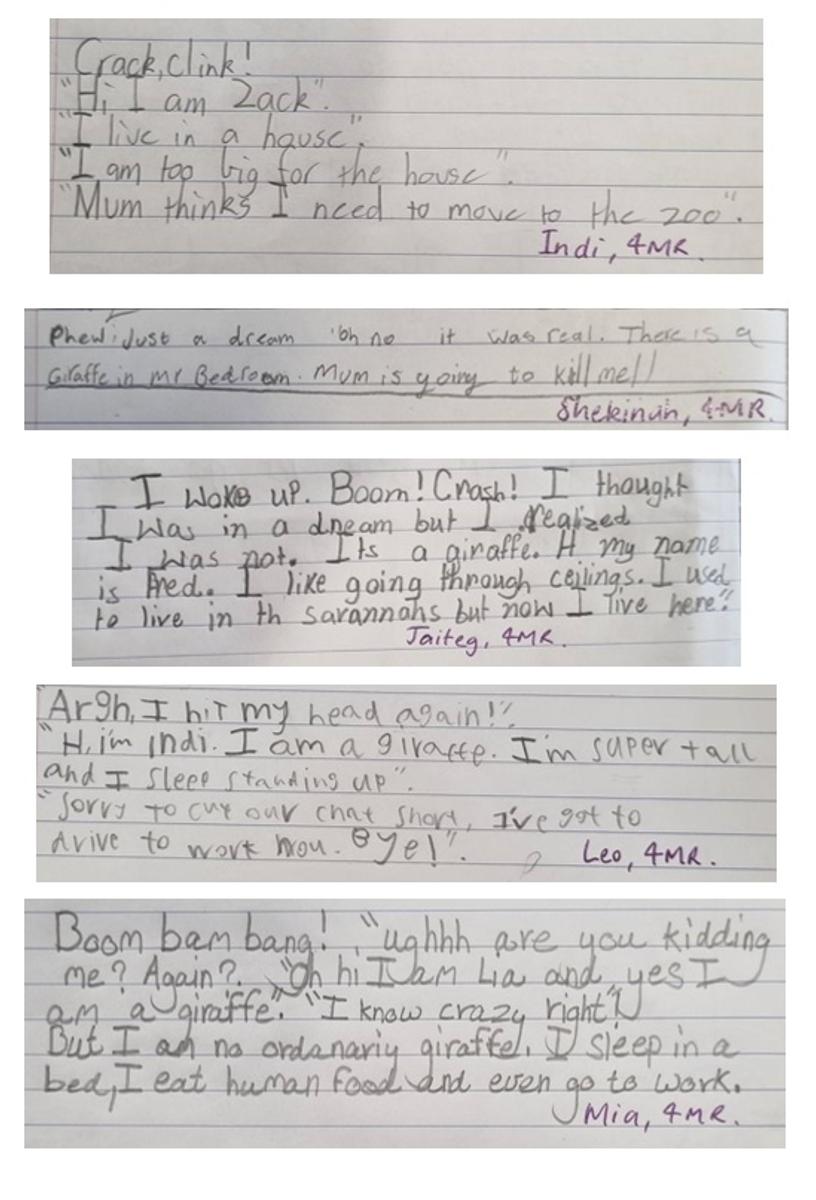 Crack, clink!
"Hi I am Zack".
"I live in a house".
"I am too big for the house".
"Mum thinks I need to move to the zoo".
Indi, 4MR.
Phew! Just a dream 'oh no it was real. There is a
Giraffe in my Bedroom. Mum is going to kill me!!
Shekinah, 4MR.
I woke up. Boom! Crash! I thought
I was in a dream but I realized
I was not. Its a giraffe. H my name
is Fred. I like going through ceilings. I used
to live in th savannahs but now I live here".
Jaiteg, 4MR.
"Argh, I hit my head again!".
"Hi, i'm indi. I am a giraffe. I'm super tall
and I sleep standing up".
"Sorry to cut our chat short, I've got to
drive to work. Bye!".
Leo, 4MR.
Boom bam bang! "ughhh are you kidding
me? Again?. "Oh hi I am Lia and yes I
am a giraffe". "I know crazy right"
But I am no ordanariy giraffe. I sleep in a
bed, I eat human food and even go to work.
Mia, 4MR.